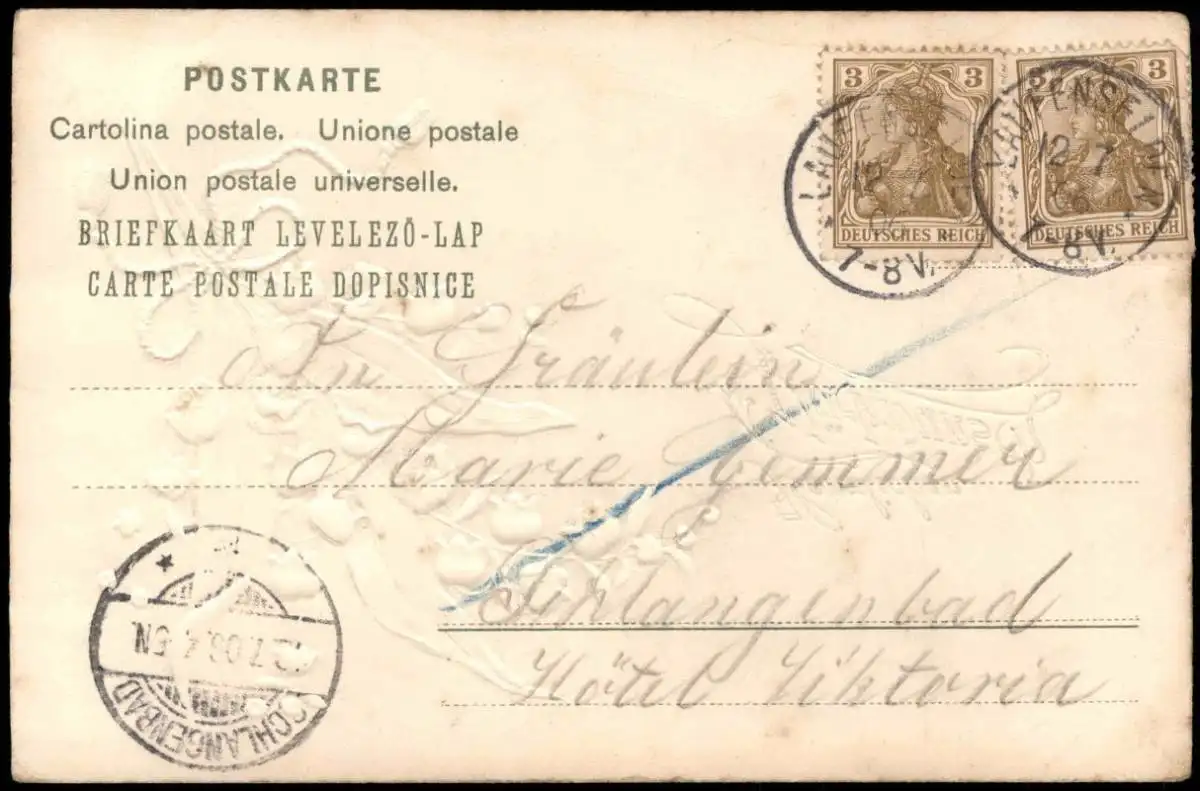 POSTKARTE
Cartolina postale. Unione postale
Union postale universelle.
BRIEFKAART LEVELEZŐ-LAP
CARTE POSTALE DOPISNICE
3 3
DEUTSCHES REICH
3 3
DEUTSCHES REICH
LAUFENSELDEN
12 7
7-8V.
7-8V.
An Fräulein
Marie Zimmer
Schlangenbad
Hôtel Viktoria
12.7.06.4-5N.
SCHLANGENBAD